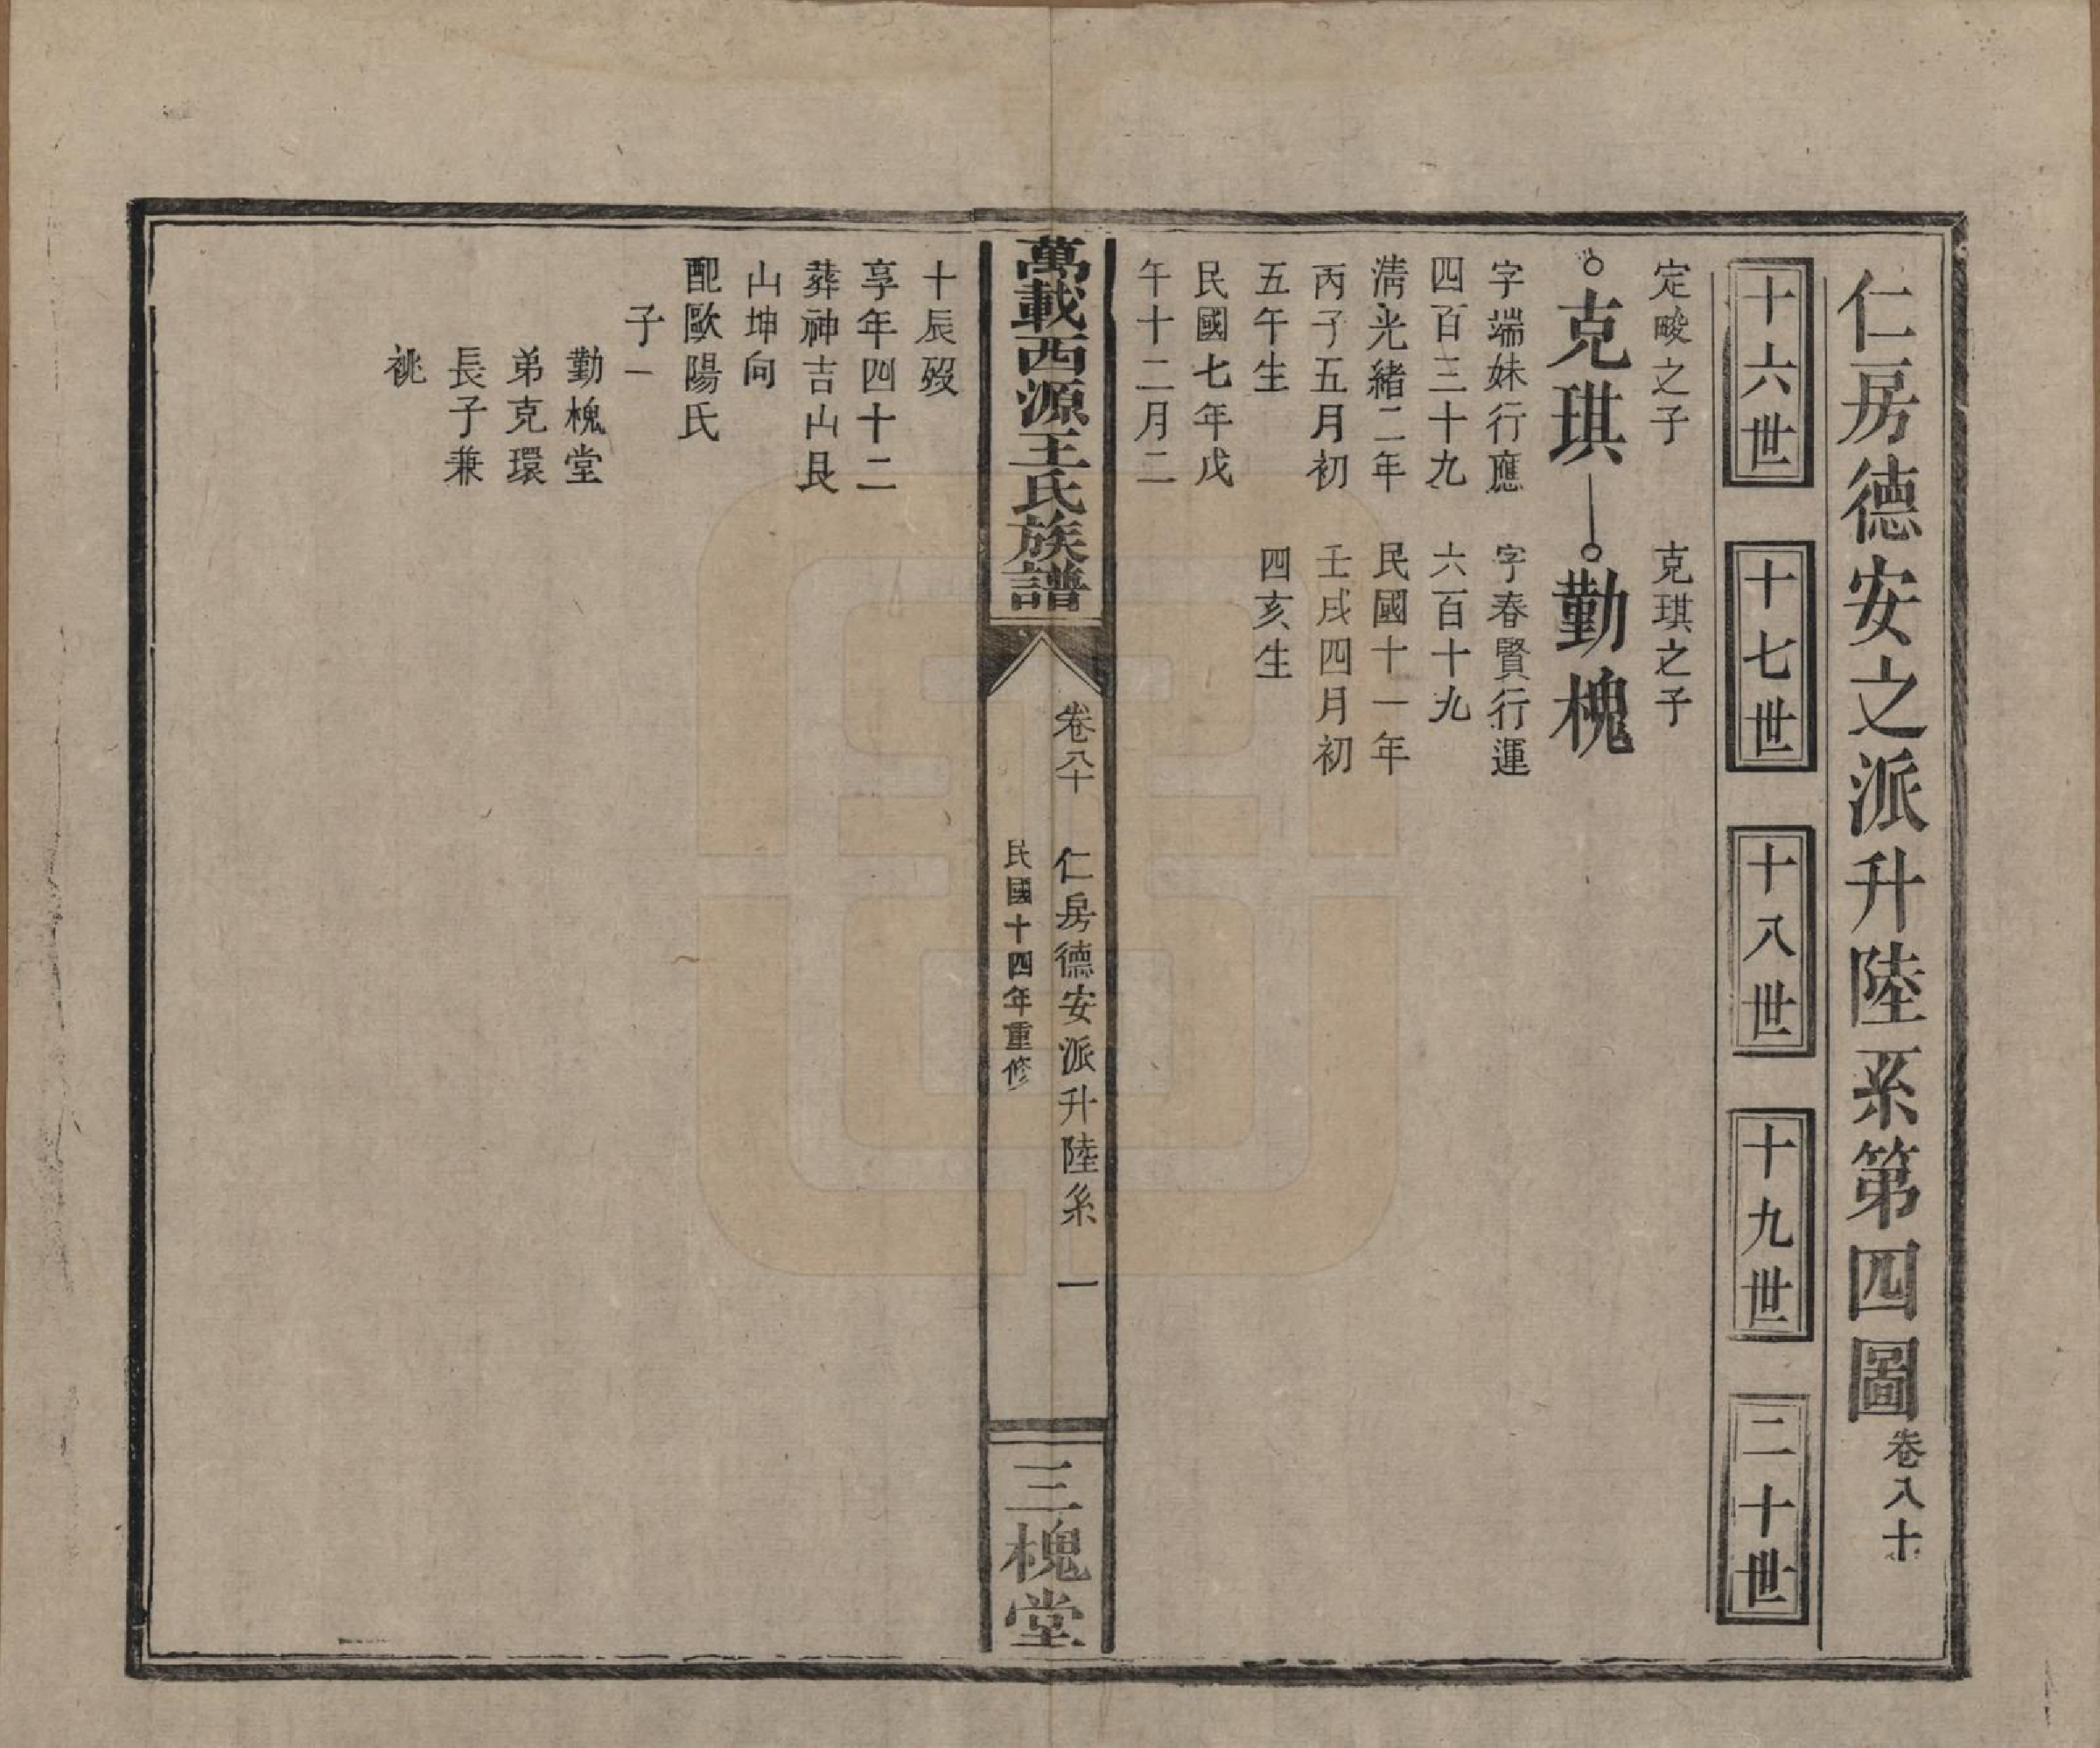 仁房德安之派升陸系第四圖卷八十
十六世
十七世
十八世
十九世
二十世
定畯之子
克琪
字端妹行應
四百三十九
淸光緒二年
丙子五月初
五午生
民國七年戊
午十二月二
克琪之子
勤槐
字春賢行運
六百十九
民國十一年
壬戌四月初
四亥生
萬載西源王氏族譜
卷八十
仁房德安派升陸系
一
民國十四年重修
三槐堂
十辰歿
享年四十二
葬神吉山艮
山坤向
配歐陽氏
子一
勤槐堂
弟克環
長子兼
祧